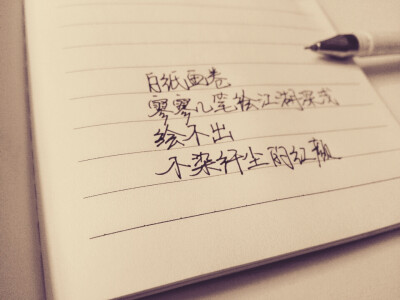 白纸画卷
寥寥几笔绘江湖深浅
绘不出
不染纤尘的红颜